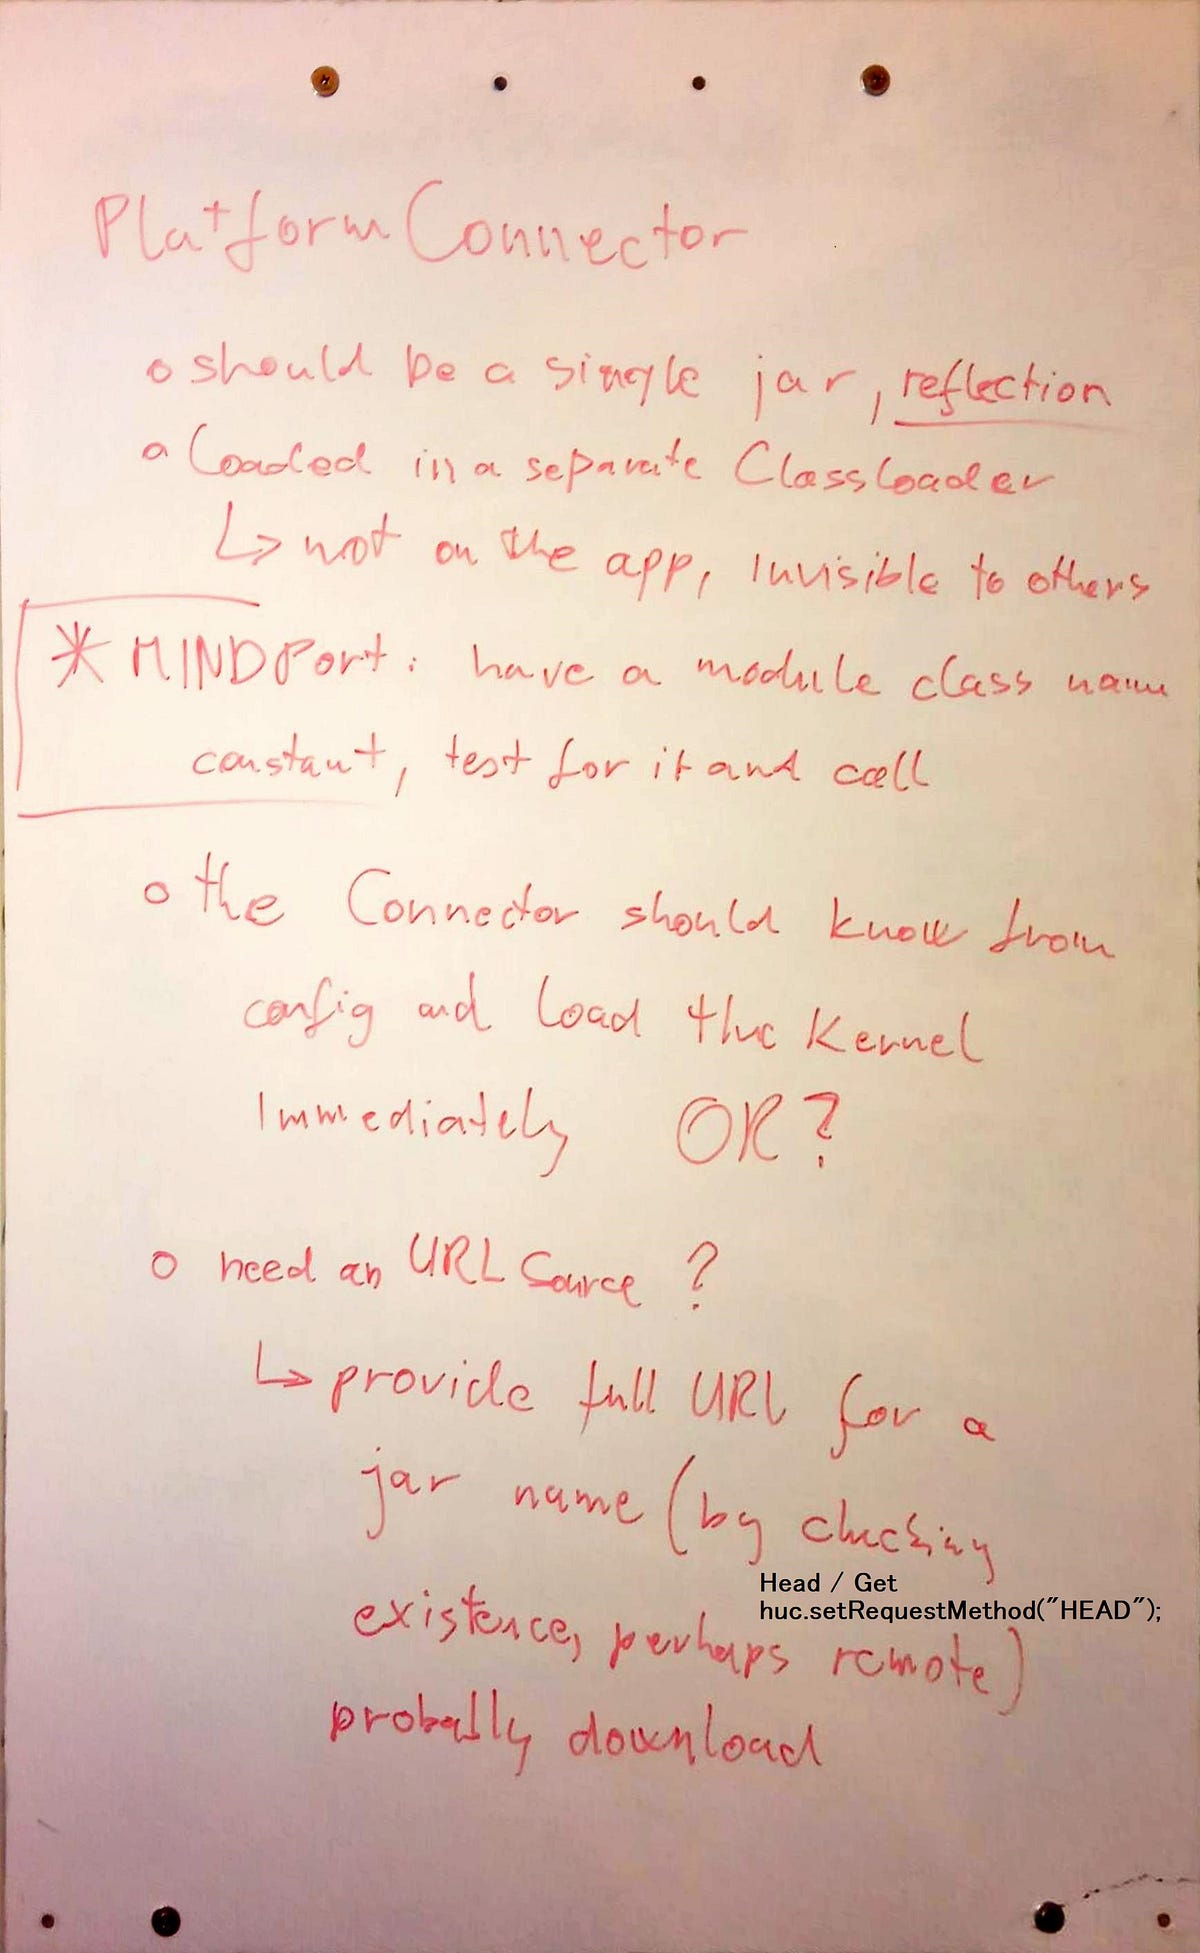 PlatformConnector
o should be a single jar, reflection
o loaded in a separate Classloader
↳ not on the app, invisible to others
* MINDPort: have a module class name
constant, test for it and call
o the Connector should know from
config and load the Kernel
Immediately OR?
o need an URL Source ?
↳ provide full URL for a
jar name (by checking
Head / Get
huc.setRequestMethod("HEAD");
existence, perhaps remote)
probally download